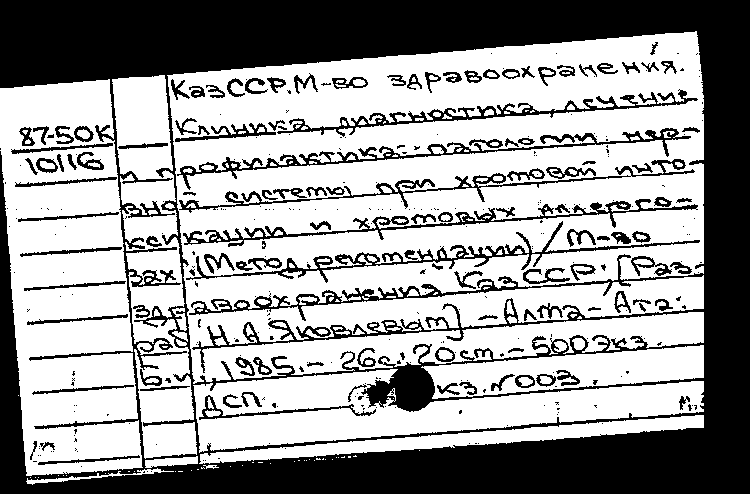 КазССР. М-во здравоохранения.
87-50К
10116
Клиника, диагностика, лечение
и профилактика патологии нер-
вной системы при хромовой инто-
ксикации и хромовых аллерго-
зах: (Метод. рекомендации) / М-во
здравоохранения КазССР; [Раз-
раб. Н.А. Яковлевым] - Алма-Ата:
Б.и., 1985. - 26с.: 20см. - 500 экз.
ДСП. кз. №003.